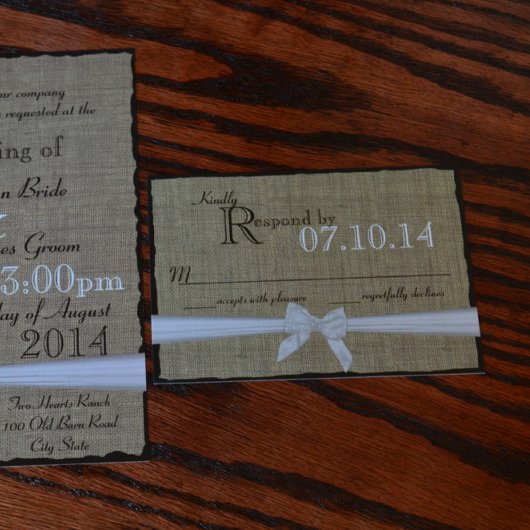 ur company
s requested at the
ing of
n Bride
es Groom
3:00pm
ay of August
2014
Two Hearts Ranch
100 Old Barn Road
City State
Kindly
Respond by
07.10.14
M
accepts with pleasure
regretfully declines